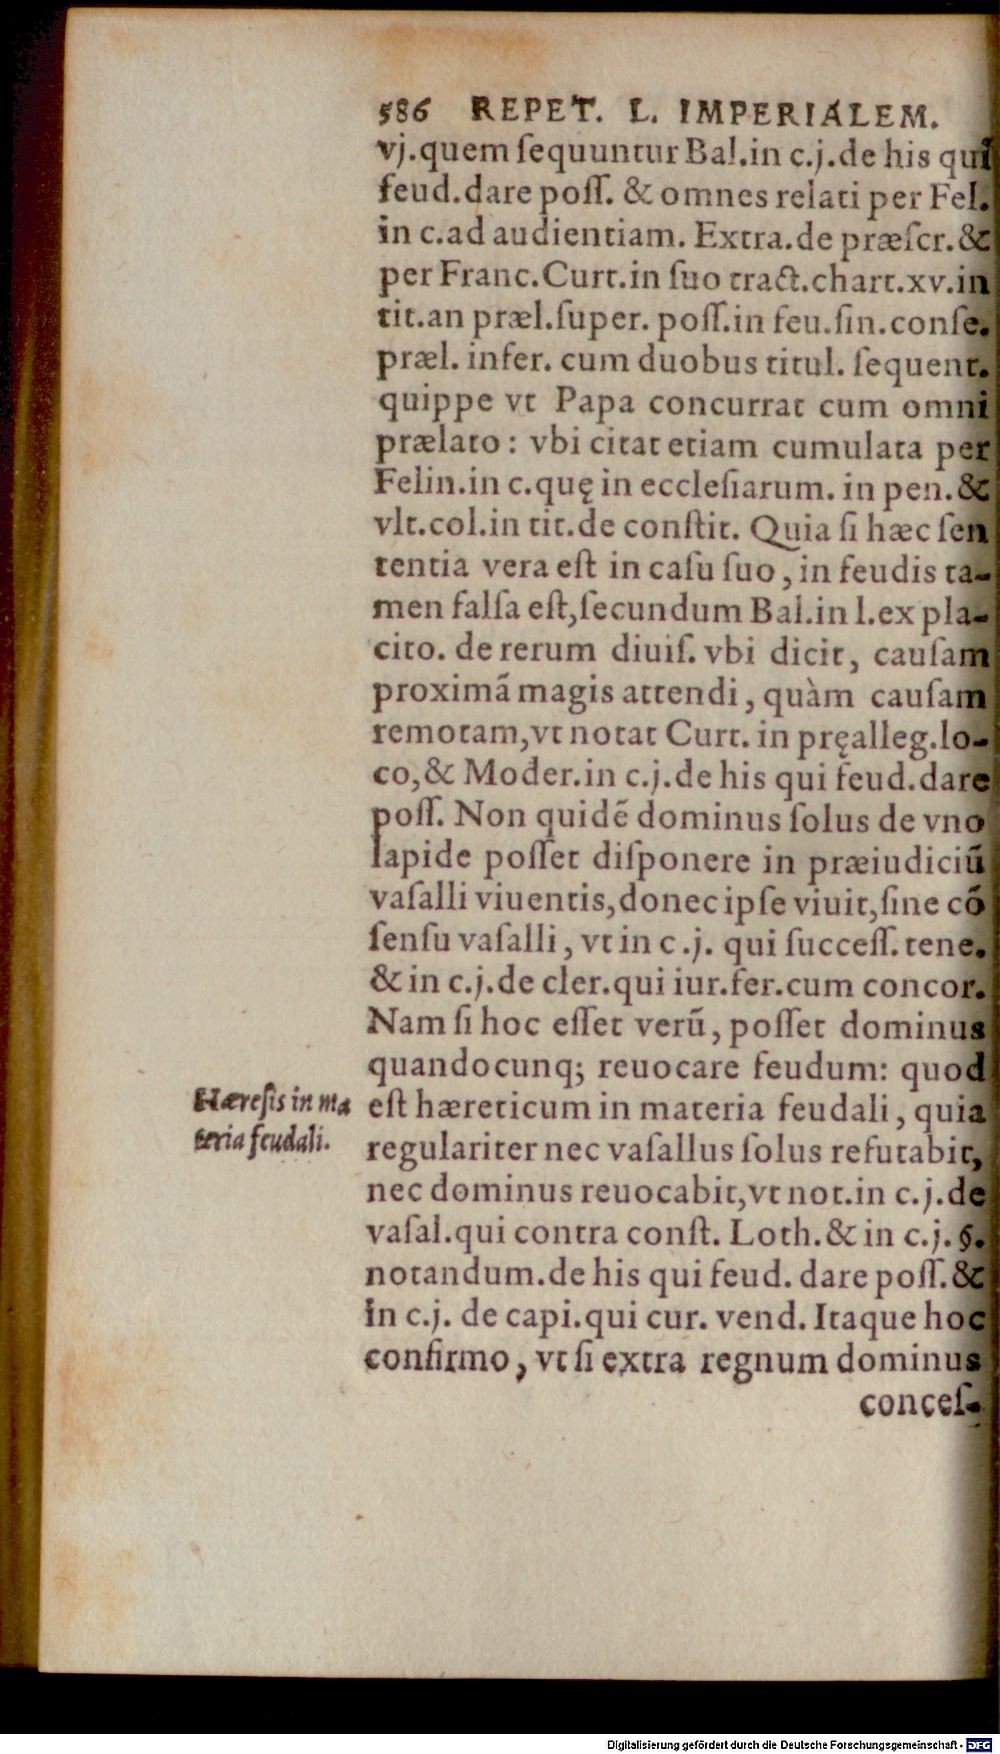 586 REPET. L. IMPERIALEM.
vj.quem ſequuntur Bal.in c.j.de his qui
feud.dare poſſ. & omnes relati per Fel.
in c.ad audientiam. Extra.de præſcr.&
per Franc.Curt.in ſuo tract.chart.xv.in
tit.an præl.ſuper. poſſ.in feu.ſin.conſe.
præl. infer. cum duobus titul. ſequent.
quippe vt Papa concurrat cum omni
prælato: vbi citat etiam cumulata per
Felin.in c.quę in eccleſiarum. in pen.&
vlt.col.in tit.de conſtit. Quia ſi hæc ſen
tentia vera eſt in caſu ſuo, in feudis ta-
men falſa eſt,ſecundum Bal.in l.ex pla-
cito. de rerum diuiſ. vbi dicit, cauſam
proximã magis attendi, quàm cauſam
remotam,vt notat Curt. in pręalleg.lo-
co,& Moder.in c.j.de his qui feud.dare
poſſ. Non quidẽ dominus ſolus de vno
lapide poſſet diſponere in præiudiciũ
vaſalli viuentis,donec ipſe viuit,ſine cõ
ſenſu vaſalli, vt in c.j. qui ſucceſſ. tene.
& in c.j.de cler.qui iur.fer.cum concor.
Nam ſi hoc eſſet verũ, poſſet dominus
quandocunq; reuocare feudum: quod
Hæreſis in ma
teria feudali.
eſt hæreticum in materia feudali, quia
regulariter nec vaſallus ſolus refutabit,
nec dominus reuocabit,vt not.in c.j.de
vaſal.qui contra conſt. Loth.& in c.j.§.
notandum.de his qui feud. dare poſſ.&
in c.j. de capi.qui cur. vend. Itaque hoc
confirmo, vt ſi extra regnum dominus
conceſ-
Digitalisierung gefördert durch die Deutsche Forschungsgemeinschaft - DFG